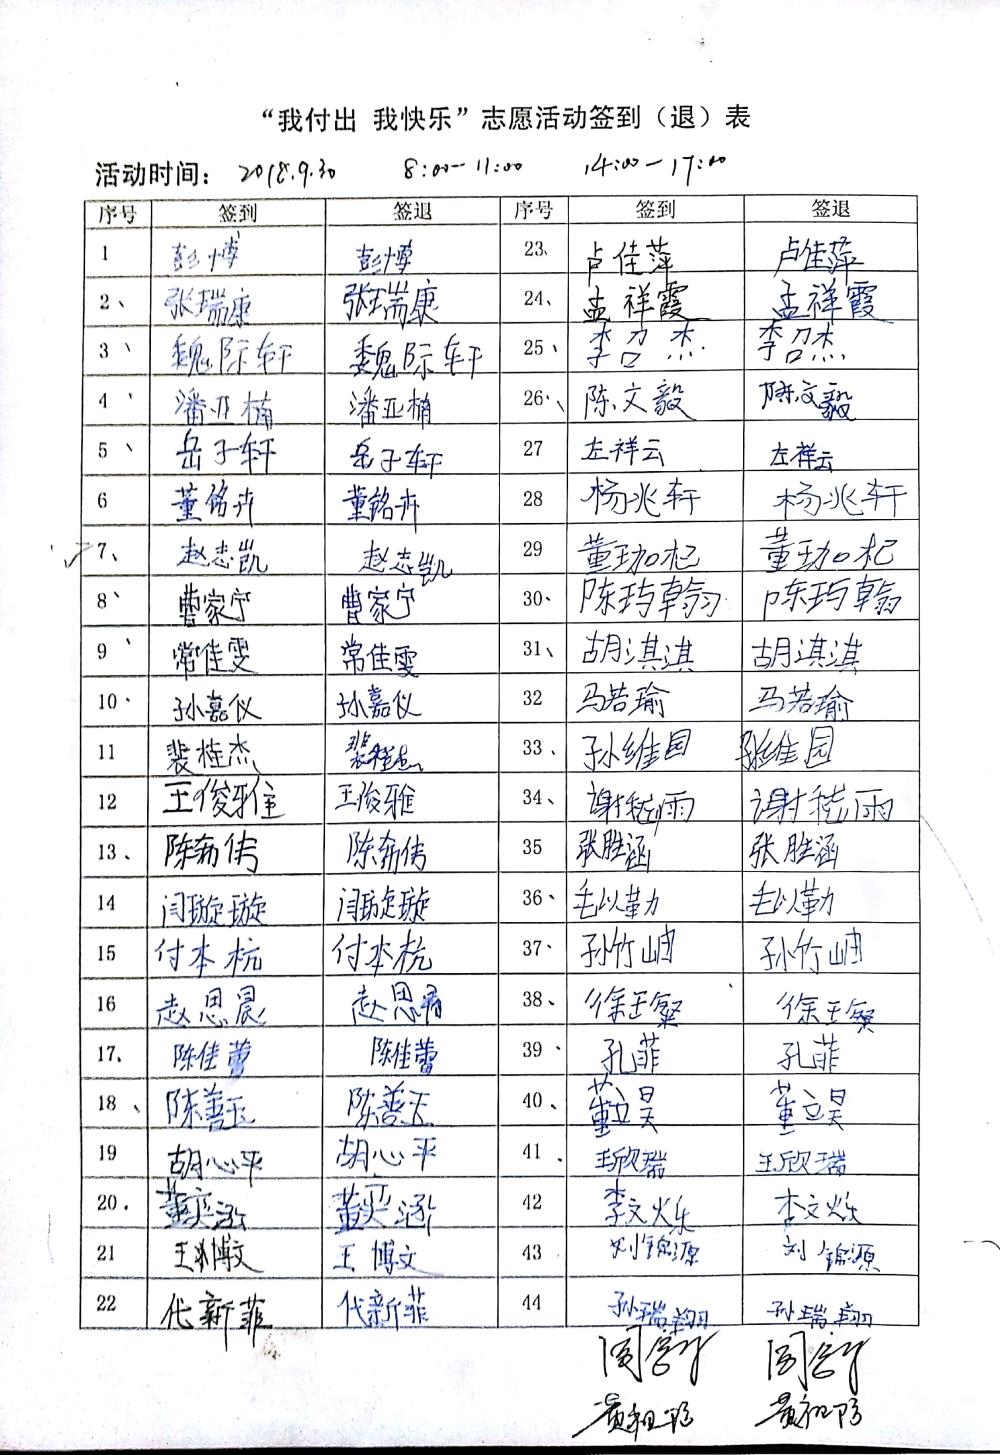 “我付出 我快乐”志愿活动签到（退）表
活动时间： 2018.9.30 8:00—11:00 14:00—17:00
序号 签到 签退 序号 签到 签退
1 彭博 彭博 23、 卢佳萍 卢佳萍
2、 张瑞康 张瑞康 24、 孟祥霞 孟祥霞
3、 魏际轩 魏际轩 25、 李召杰 李召杰
4、 潘亚楠 潘亚楠 26、 陈文毅 陈文毅
5、 岳子轩 岳子轩 27 左祥云 左祥云
6 董铭卉 董铭卉 28 杨兆轩 杨兆轩
7、 赵志凯 赵志凯 29 董珈杞 董珈杞
8、 曹家宁 曹家宁 30、 陈玙翰 陈玙翰
9、 常佳雯 常佳雯 31、 胡淇淇 胡淇淇
10、 孙嘉仪 孙嘉仪 32 马若瑜 马若瑜
11 裴桂杰 裴桂杰 33、 孙维园 孙维园
12 王俊雅 王俊雅 34、 谢 雨 谢 雨
13、 陈 伟 陈 伟 35 张胜涵 张胜涵
14 闫璇璇 闫璇璇 36、 毛以勤 毛以勤
15 付本杭 付本杭 37、 孙竹岫 孙竹岫
16 赵思晨 赵思 38、 徐玉粲 徐玉粲
17、 陈佳蕾 陈佳蕾 39、 孔菲 孔菲
18、 陈善玉 陈善玉 40、 董立昊 董立昊
19 胡心平 胡心平 41、 王欣瑞 王欣瑞
20、 董奕泓 董奕泓 42 李文烁 李文烁
21 王博文 王博文 43 刘锦源 刘锦源
22 代新菲 代新菲 44 孙瑞翔 孙瑞翔
黄祖 黄祖